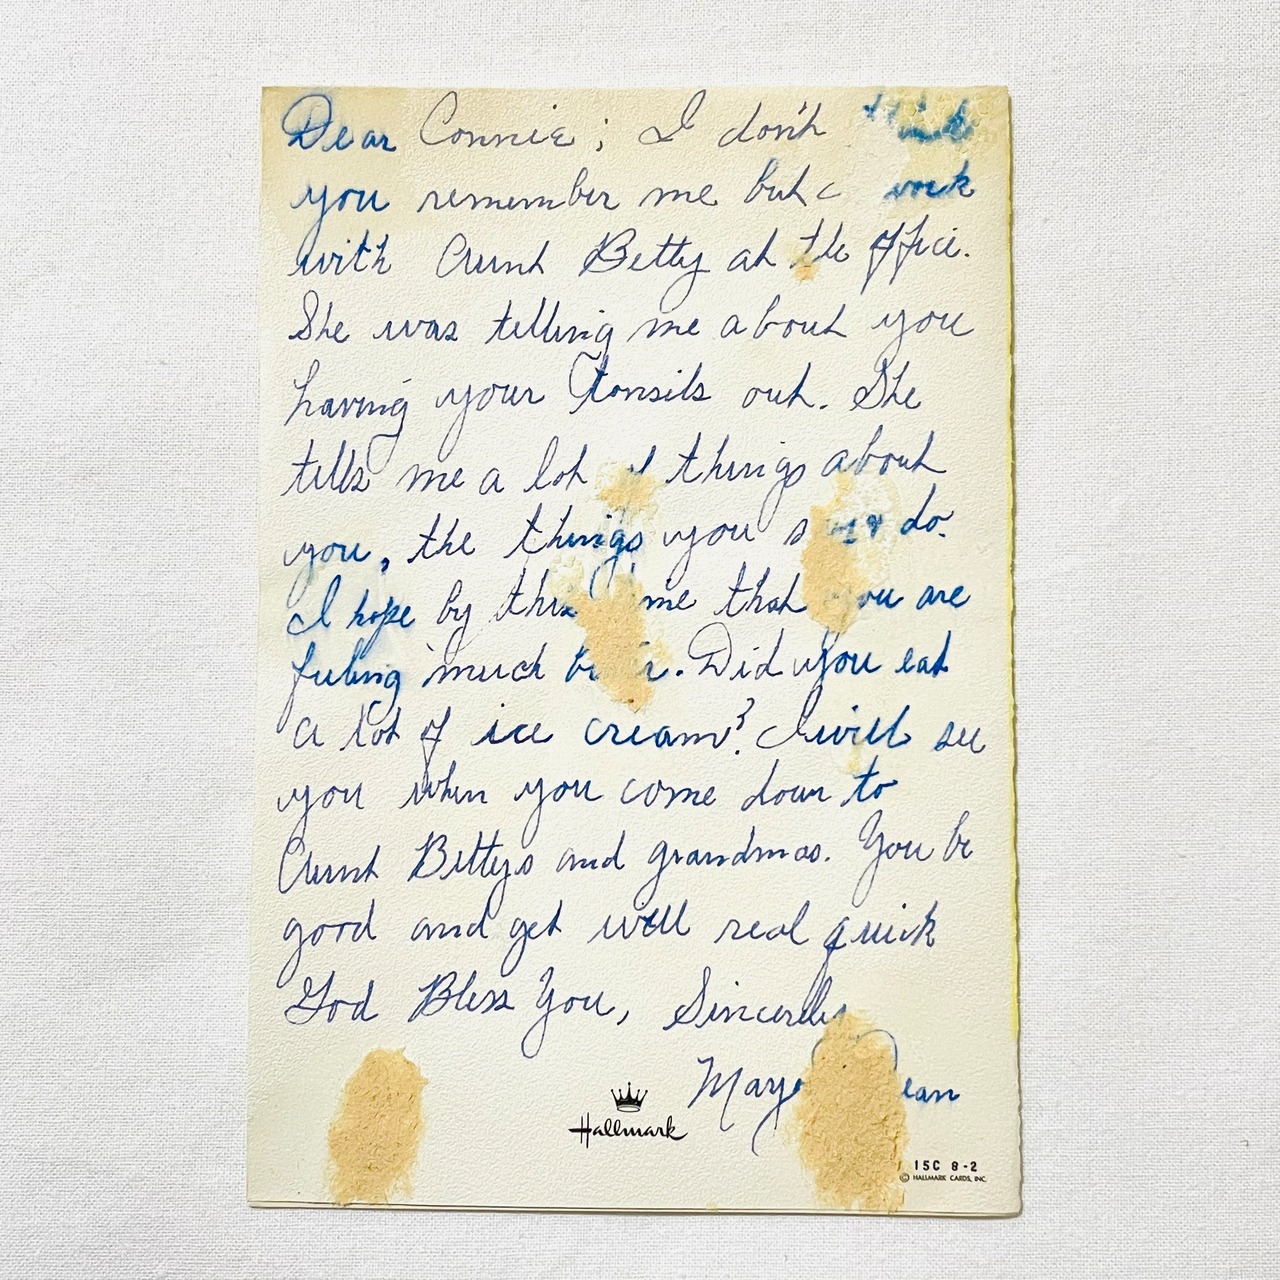 Dear Connie; I don't think
you remember me but I work
with Aunt Betty at the office.
She was telling me about you
having your tonsils out. She
tells me a lot of things about
you, the things you do.
I hope by this time that you are
feeling much better. Did you eat
a lot of ice cream? I will see
you when you come down to
Aunt Bettys and grandmas. You be
good and get well real quick
God Bless You, Sincerely
Mary
Hallmark
15C 8-2
© HALLMARK CARDS, INC.